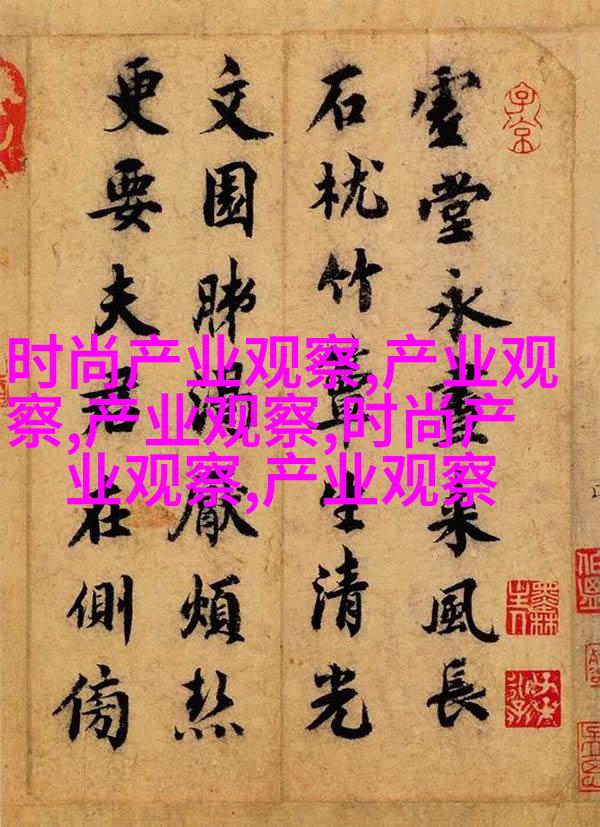 虛堂永晝来風長
石枕竹簟生清光
文園肺渴厭煩熱
更要夫君在側傍
时尚产业观察,产业观
察,产业观察,时尚产
业观察,产业观察